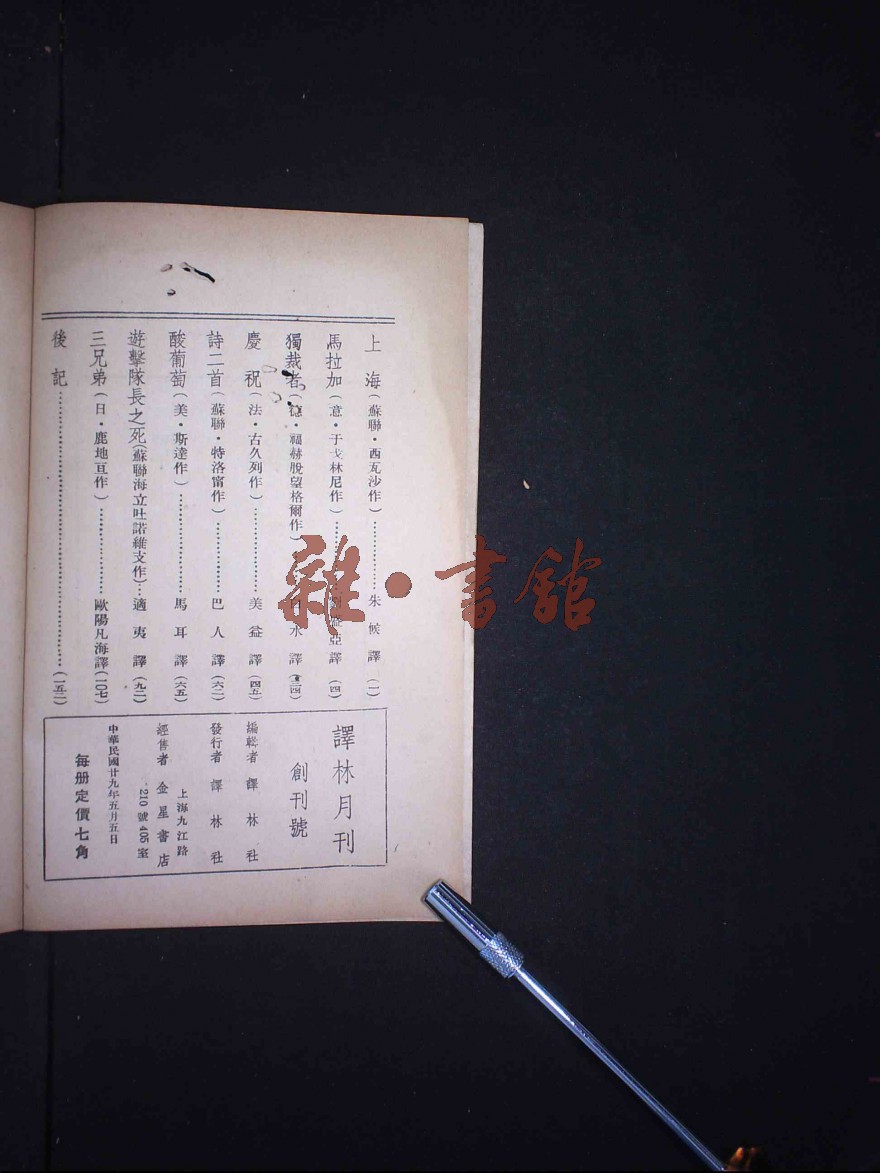 上海（蘇聯·西瓦沙作）……………朱候譯（一）
馬拉加（意·于戈林尼作）…………亞譯（四）
獨裁者（德·福赫脫望格爾作）水譯（三四）
慶祝（法·古久列作）……………美益譯（四五）
詩二首（蘇聯·特洛甯作）…………巴人譯（六二）
酸葡萄（美·斯達作）………………馬耳譯（六五）
遊擊隊長之死（蘇聯海立吐諾維支作）…適夷譯（九二）
三兄弟（日·鹿地亘作）……………歐陽凡海譯（一〇七）
後記……………………………………（一五二）
譯林月刊
創刊號
編輯者 譯林社
發行者 譯林社
上海九江路
210號405室
經售者 金星書店
中華民國廿九年五月五日
每册定價七角
雜·書館